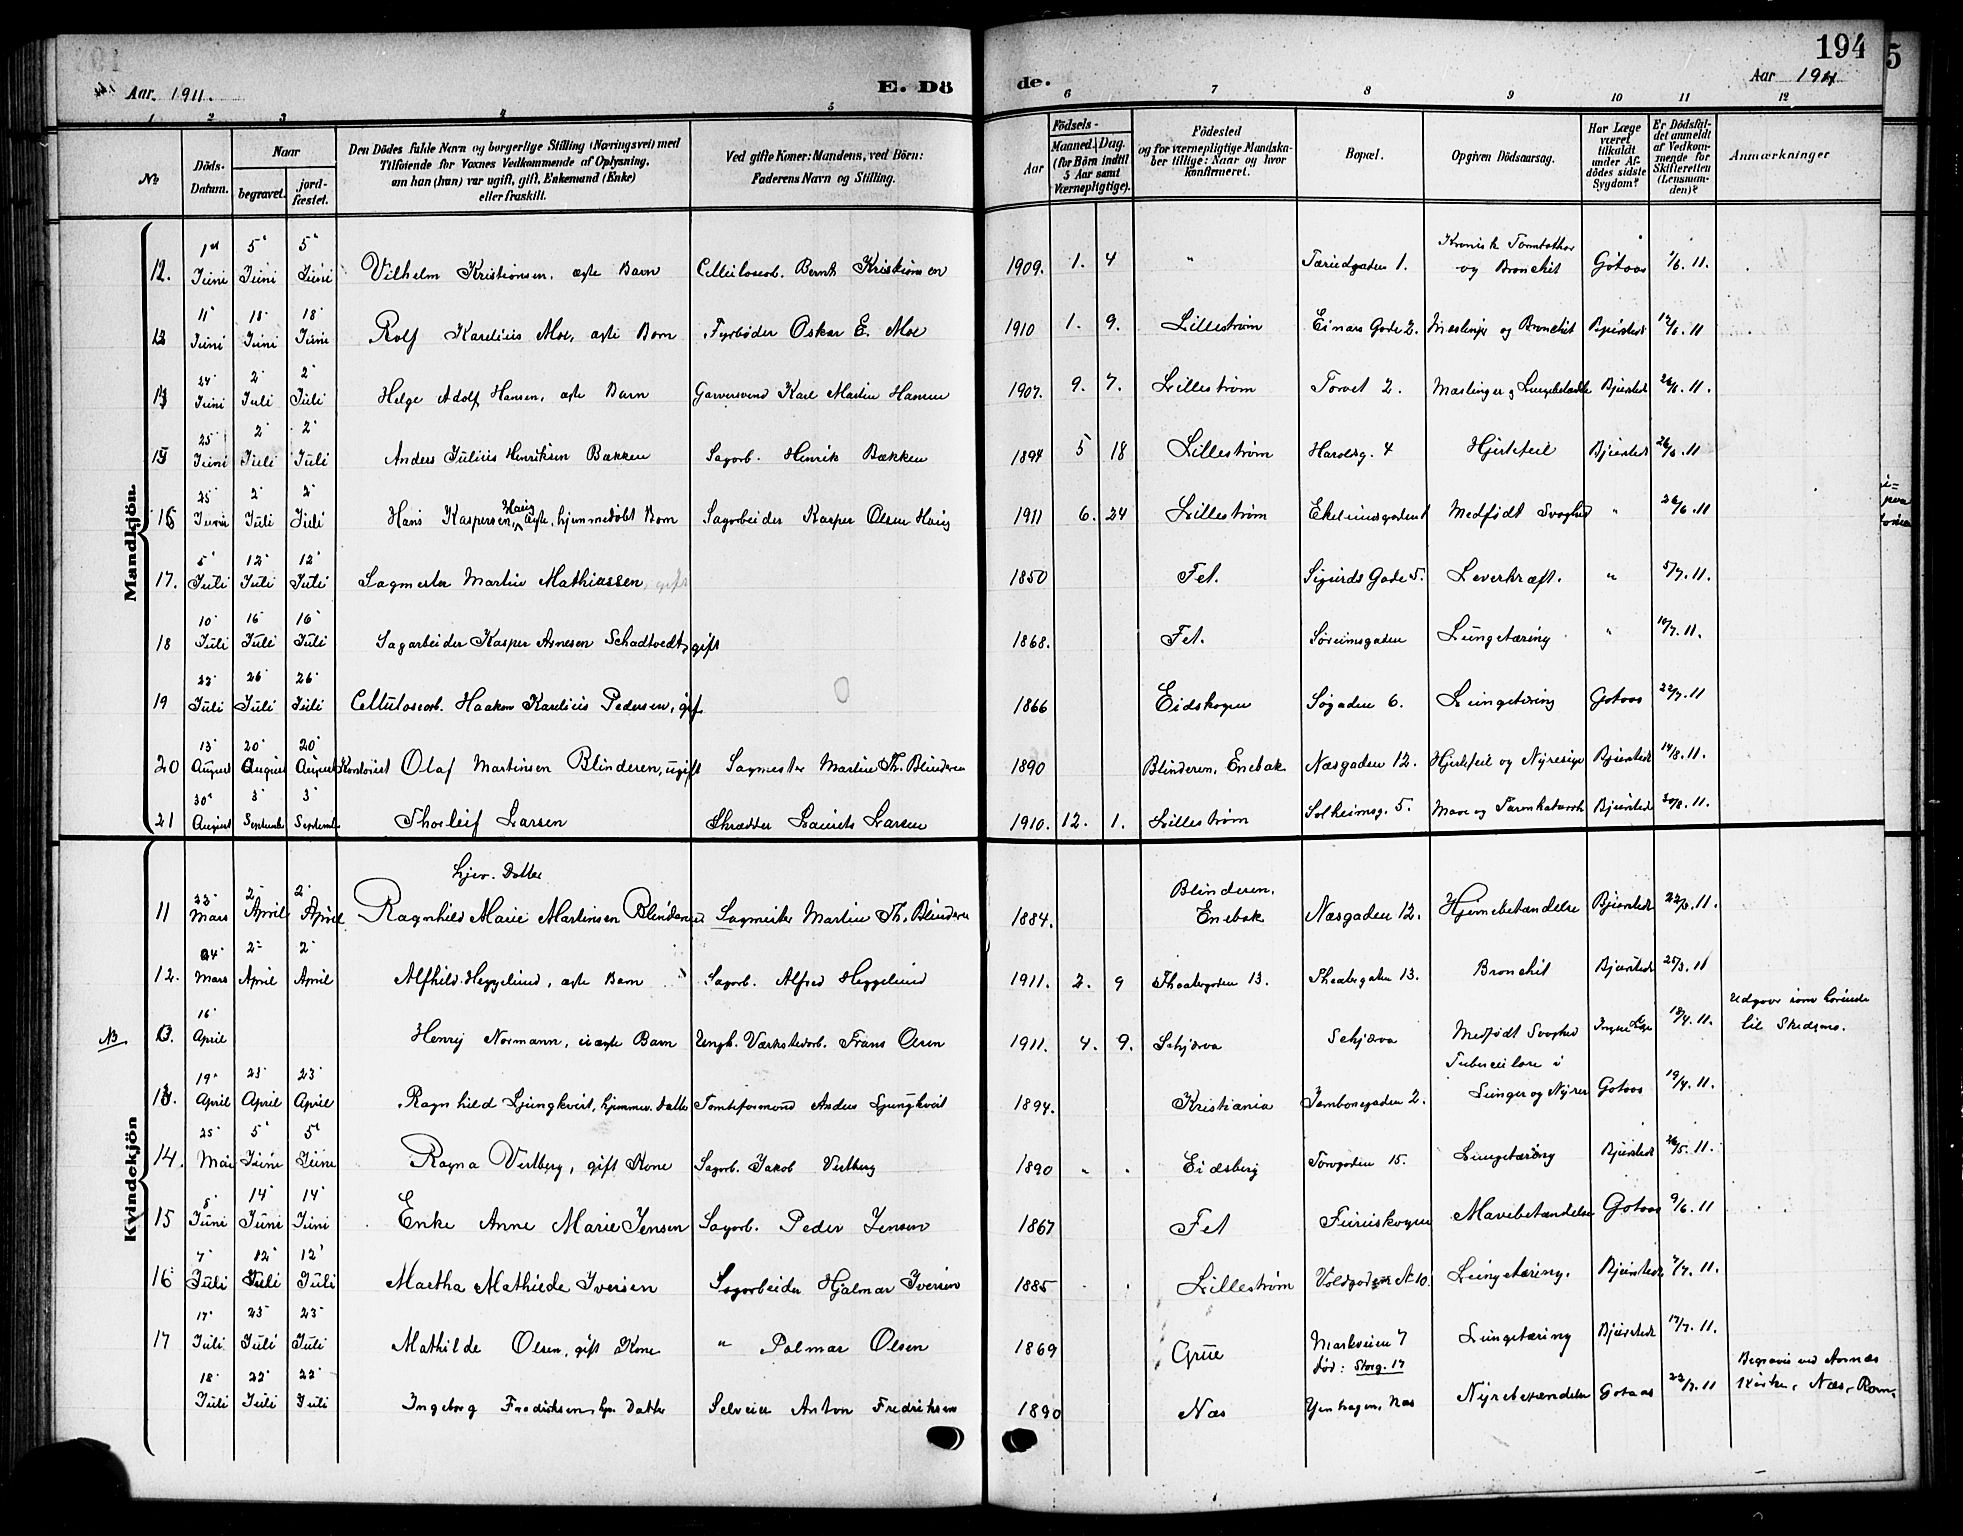 194
5
Aar. 1911.
E. Dö
de.
Aar 1911
1 2 3 4 5 6 7 8 9 10 11 12
№
Döds-Datum.
Naar
begravet.
jordfæstet.
Den Dödes fulde Navn og borgerlige Stilling (Næringsvei) med
Tilföiende for Voxnes Vedkommende af Oplysning,
om han (hun) var ugift, gift, Enkemand (Enke)
eller fraskilt.
Ved gifte Koner: Mandens, ved Börn:
Faderens Navn og Stilling.
Födsels-
Aar
Maaned. Dag.
(for Börn indtil
5 Aar samt
Værnepligtige).
Födested
og for værnepligtige Mandskaber tillige: Naar og hvor
konfirmeret.
Bopæl.
Opgiven Dödsaarsag.
Har Læge været tilkaldt under Afdödes sidste Sygdom?
Er Dödsfaldet anmeldt af Vedkommende for Skifteretten (Lensmanden)?
Anmærkninger
Mandkjön.
12. 1 Juni 5 Juni 5 Juni Vilhelm Kristiansen, ægte Barn Cellulosearb. Bernh Kristiansen 1909. 1. 4 " 1. og Bronchit Gotaas 1/6. 11.
13 11 Juni 18 Juni 18 Juni Rolf Karelius Moe, ægte Barn Fyrbøder Oskar E. Moe 1910 1. 9. Lillestrøm Einars Gade 2. Meslinger og Bronchit Bjerstedt 12/6. 11
14 24 Juni 2 Juli 2 Juli Helge Adolf Hansen, ægte Barn Garversvend Karl Martin Hansen 1907. 9. 7. Lillestrøm Torvet 2. Mæslinger og Bjerstedt 26/6. 11.
15 25 Juni 2 Juli 2 Juli Anders Julius Henriksen Bakken Sagarb. Henrik Bækken 1894 5 18 Lillestrøm Haraldsg. 4 Hjertefeil Bjerstedt 26/6. 11
16 25 Juni 2 Juli 2 Juli Hans Kaspersen Haug, ægte, hjemmedøbt Barn Sagarbeider Kasper Olsen Haug 1911 6. 24 Lillestrøm Medfødt Svaghed " 26/6. 11
17. 5 Juli 12 Juli 12 Juli Sagmester Martin Mathiassen, gift 1850 Fet. Sigurds Gade 5. Leverkræft. " 5/7. 11.
18 10 Juli 16 Juli 16 Juli Sagarbeider Kasper Arnesen Schadtvedt, gift 1868. Fet. Lungetæring " 10/7. 11.
19 22 Juli 26 Juli 26 Juli Cellulosearb. Haakon Karelius Pedersen, gift 1866 Eidskogen Søgaden 6. Lungetæring Gotaas 22/7. 11
20 13 August 20 August 20 August Kontorist Olaf Martinsen Blinderen, ugift Sagmester Martin Th. Blinderen 1890 Blinderen, Enebak Næsgaden 12. Hjertfeil og Nyresyge Bjerstedt 14/8. 11.
21 30 August 3 Septemb. 3 Septemb. Thorleif Larsen Skrædder Laurits Larsen 1910. 12. 1. Lillestrøm Solheimsg. 5. Mave og Tarmkatarrh Bjerstedt 30/8. 11.
Kvindekjön
11 22 Mars 2 April 2 April hjev. Datter Ragnhild Marie Martinsen Blinderen Sagmester Martin Th. Blinderen 1884. Blinderen, Enebak Næsgaden 12. Hjernebetændelse Bjerstedt 22/3. 11.
12. 24 Mars 2 April 2 April Alfhild Heggelund, ægte Barn Sagarb. Alfred Heggelund 1911. 2. 9 Theatergaden 13. Theatergaden 13. Bronchit Bjerstedt 25/3. 11
NB 13. 16 April Henry Normann, uægte Barn Ungk. Værkstedarb. Frans Olsen 1911. 4. 9. Schjærva Schjærva Medfødt Svaghed Ingen Læge 18/4. 11. Udgaar som hørende til Skedsmo.
13. 19 April 23 April 23 April Ragnhild Ljungkvist, hjemmev. Datter Tomteformand Anders Ljungkvist 1894. Kristiania Jernbanegaden 2. Tuberculose i Lunger og Nyrer Gotaas 19/4. 11.
14. 25 Mai 5 Juni 5 Juni Ragna Vestberg, gift Kone Sagarb. Jakob Vestberg 1890 Eidsberg Torvgaden 15. Lungetæring Bjerstedt 26/5. 11.
15 8 Juni 14 Juni 14 Juni Enke Anne Marie Jensen Sagarb. Peder Jensen 1867 Fet Mavebetændelse Gotaas 9/6. 11
16 7 Juli 12 Juli 12 Juli Martha Mathilde Iversen Sagarbeider Hjalmar Iversen 1885 Lillestrøm Voldgaden № 10 Lungetæring. Bjerstedt 7/7. 11.
17 17 Juli 23 Juli 23 Juli Mathilde Olsen, gift Kone " Palmar Olsen 1869 Grue Markveien 7 død: Storg. 17 Lungetæring Bjerstedt 17/7. 11.
18 Juli 22 Juli 22 Juli Ingeborg Fredriksen, hjv. Datter Selveier Anton Fredriksen 1890 Næs Næs Nyrebetændelse Gotaas 22/7. 11 Begravet ved Aarnæs Kirke, Næs, Rom.